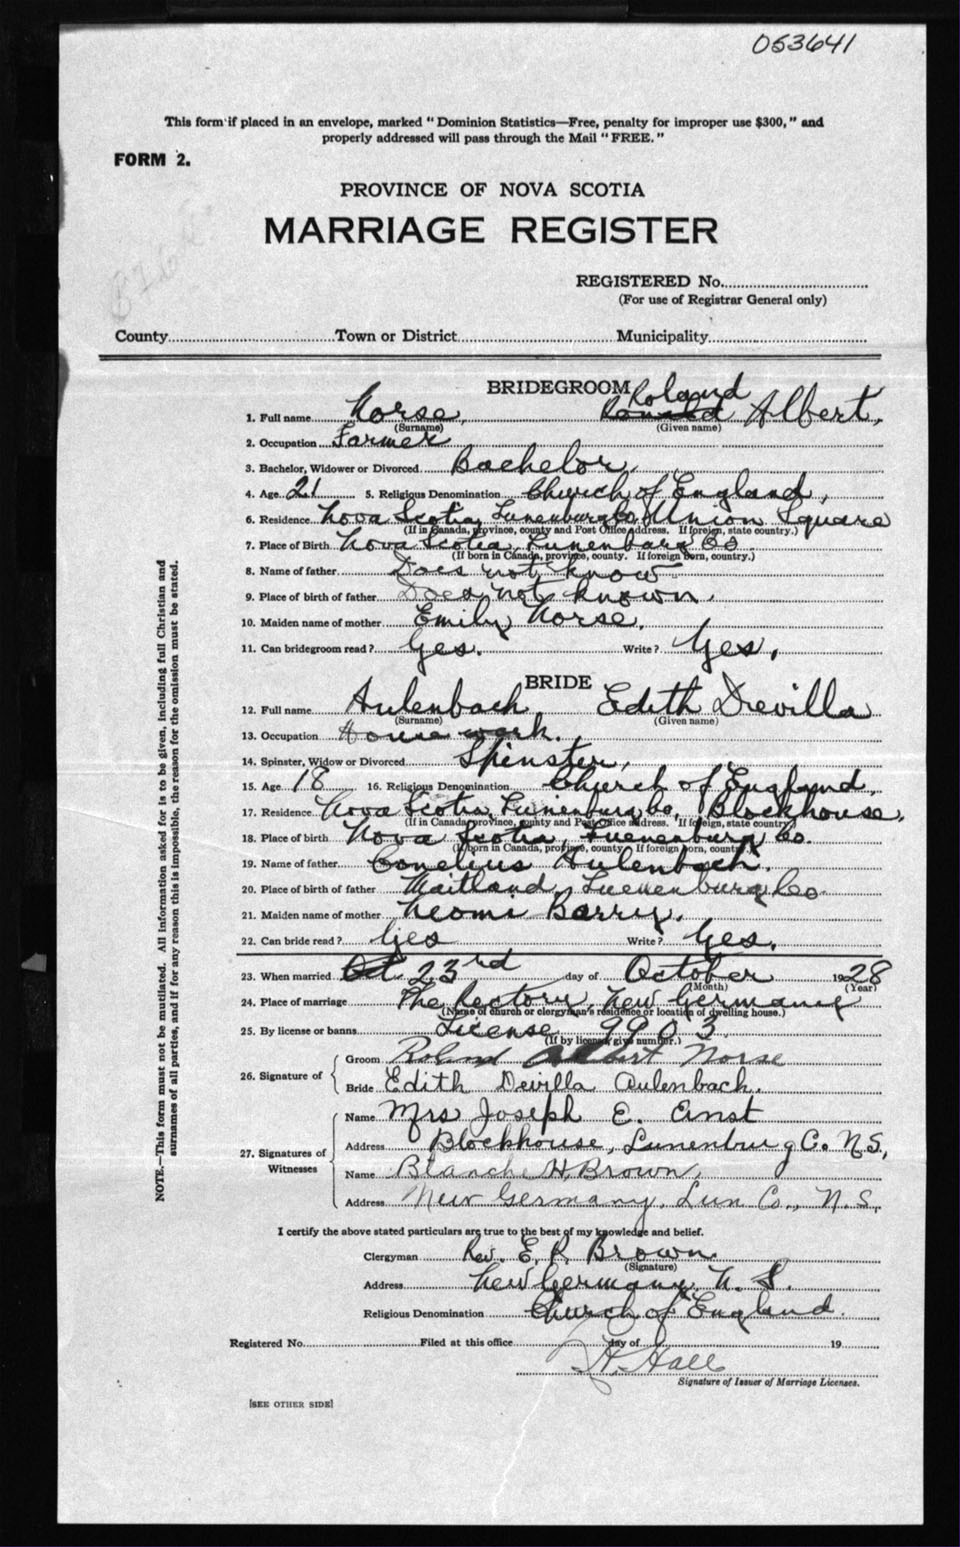 053641
This form if placed in an envelope, marked "Dominion Statistics—Free, penalty for improper use $300," and
properly addressed will pass through the Mail "FREE."
FORM 2.
PROVINCE OF NOVA SCOTIA
MARRIAGE REGISTER
REGISTERED No.
(For use of Registrar General only)
County Town or District Municipality
BRIDEGROOM
Roland
1. Full name Norse, Ronald Albert,
(Surname) (Given name)
2. Occupation Farmer
3. Bachelor, Widower or Divorced Bachelor.
4. Age 21 5. Religious Denomination Church of England,
6. Residence Nova Scotia, Lunenburg Co, Union Square
(If in Canada, province, county and Post Office address. If foreign, state country.)
7. Place of Birth Nova Scotia, Lunenburg Co.
(If born in Canada, province, county. If foreign born, country.)
8. Name of father Does not know
9. Place of birth of father Does not known.
10. Maiden name of mother Emily Norse.
11. Can bridegroom read? Yes. Write? Yes.
BRIDE
12. Full name Aulenbach Edith Drevilla
(Surname) (Given name)
13. Occupation House work.
14. Spinster, Widow or Divorced Spinster.
15. Age 18 16. Religious Denomination Church of England,
17. Residence Nova Scotia, Lunenburg Co, Blockhouse.
(If in Canada, province, county and Post Office address. If foreign, state country.)
18. Place of birth Nova Scotia, Luenenburg Co.
(If born in Canada, province, county. If foreign born, country.)
19. Name of father Conelius Aulenbach.
20. Place of birth of father Maitland, Luenenburg Co
21. Maiden name of mother Neomi Barry.
22. Can bride read? Yes Write? Yes.
23. When married Oct 23rd day of October 1928
(Month) (Year)
24. Place of marriage The Rectory, New Germany
(Name of church or clergyman's residence or location of dwelling house.)
25. By license or banns License 9903
(If by license, give number.)
26. Signature of
Groom Roland Albert Norse
Bride Edith Devilla Aulenbach.
27. Signatures of Witnesses
Name Mrs Joseph E. Ernst
Address Blockhouse, Lunenburg Co. N.S,
Name Blanche H. Brown,
Address New Germany, Lun Co., N.S,
I certify the above stated particulars are true to the best of my knowledge and belief.
Clergyman Rev. E. R. Brown
(Signature)
Address New Germany, N. S.
Religious Denomination Church of England.
Registered No. Filed at this office day of 19
H. Hall
Signature of Issuer of Marriage Licenses.
[SEE OTHER SIDE]
NOTE.—This form must not be mutilated. All information asked for is to be given, including full Christian and
surnames of all parties, and if for any reason this is impossible, the reason for the omission must be stated.